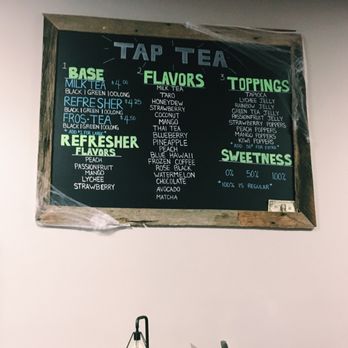 TAP TEA
1 BASE
MILK TEA $4.00
BLACK | GREEN | OOLONG
REFRESHER $4.25
BLACK | GREEN | OOLONG
FROS-TEA $4.50
BLACK | GREEN | OOLONG
* ADD $1 FOR LARGE *
REFRESHER
FLAVORS
PEACH
PASSIONFRUIT
MANGO
LYCHEE
STRAWBERRY
2 FLAVORS
MILK TEA
TARO
HONEYDEW
STRAWBERRY
COCONUT
MANGO
THAI TEA
BLUEBERRY
PINEAPPLE
PEACH
BLUE HAWAII
FROZEN COFFEE
ROSE BLACK
WATERMELON
CHOCOLATE
AVOCADO
MATCHA
3 TOPPINGS
TAPIOCA
LYCHEE JELLY
RAINBOW JELLY
GREEN TEA JELLY
PASSIONFRUIT JELLY
STRAWBERRY POPPERS
PEACH POPPERS
MANGO POPPERS
KIWI POPPERS
SWEETNESS
0% 50% 100%
*100% IS REGULAR*